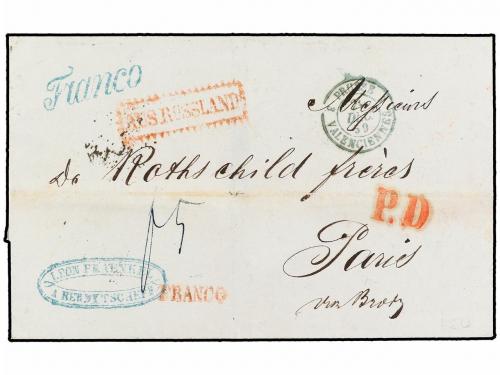 Franco
AUS RUSSLAND
PRUSSE
DEC
59
VALENCIENNES
Messieurs
De Rothschild frères
P.D
LEON FRAENKEL
A BERDYTSCHEFF
FRANCO
Paris
via Brody